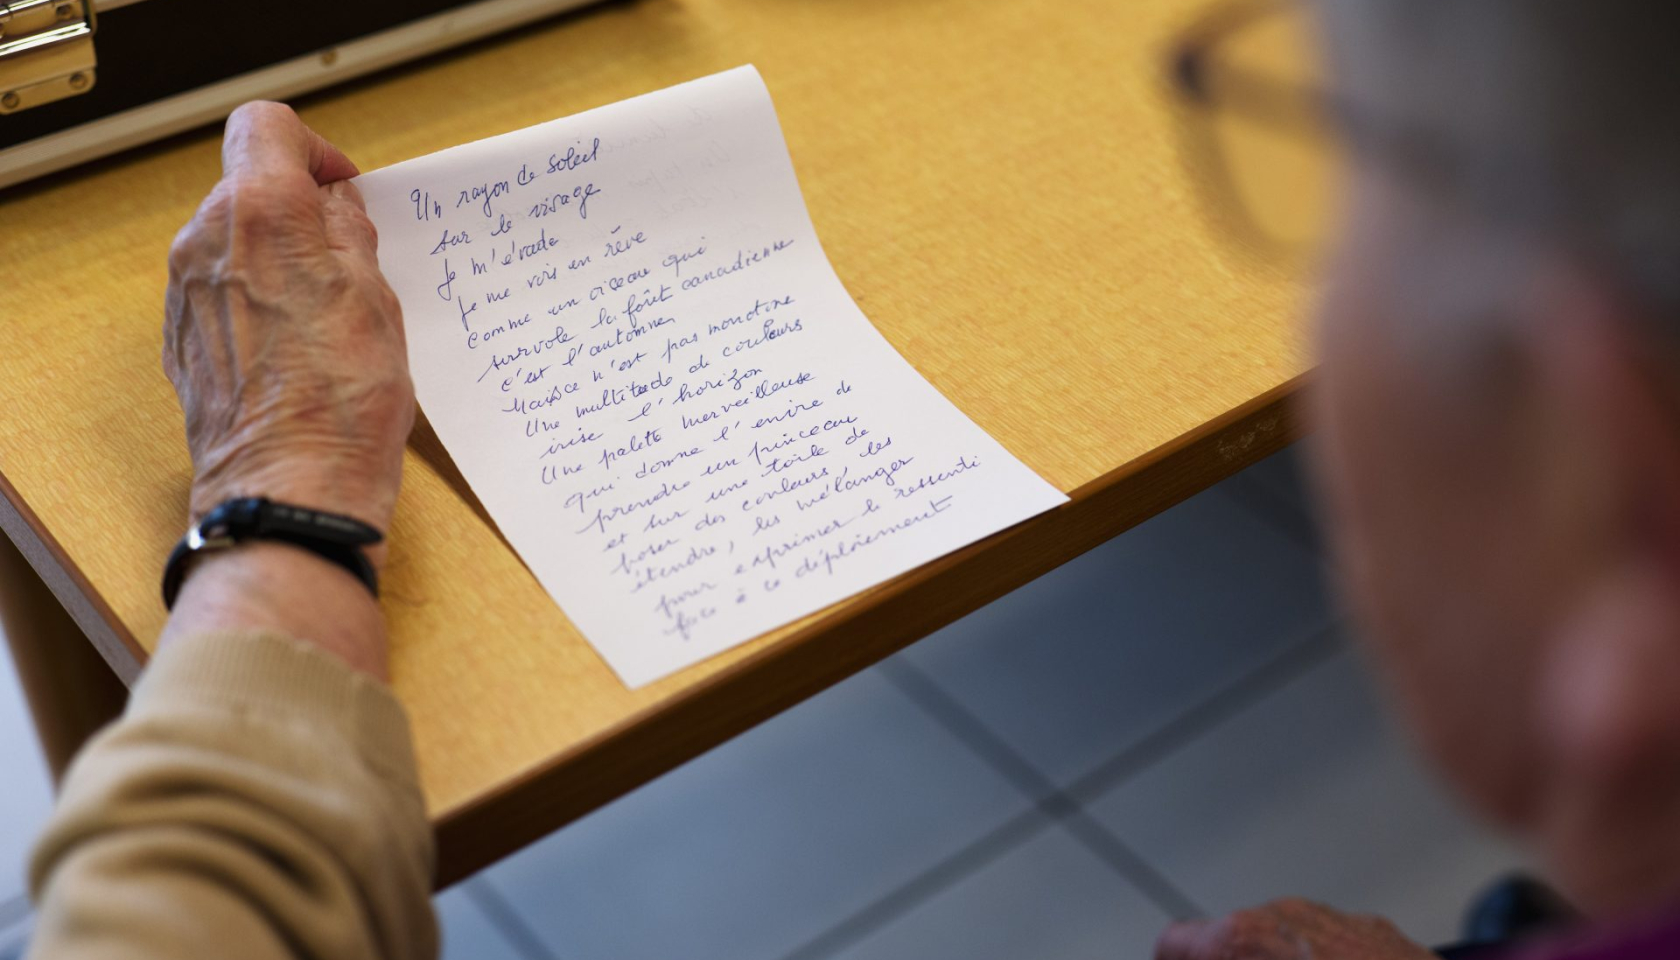 Un rayon de soleil
sur le visage
Je m'évade
Je me vois en rêve
comme un oiseau qui
survole la forêt canadienne
c'est l'automne
Mais ce n'est pas monotone
Une multitude de couleurs
irise l'horizon
Une palette merveilleuse
qui donne l'envie de
prendre un pinceau
et sur une toile de
poser des couleurs, les
étendre, les mélanger
pour exprimer le ressenti
face à ce déploiement